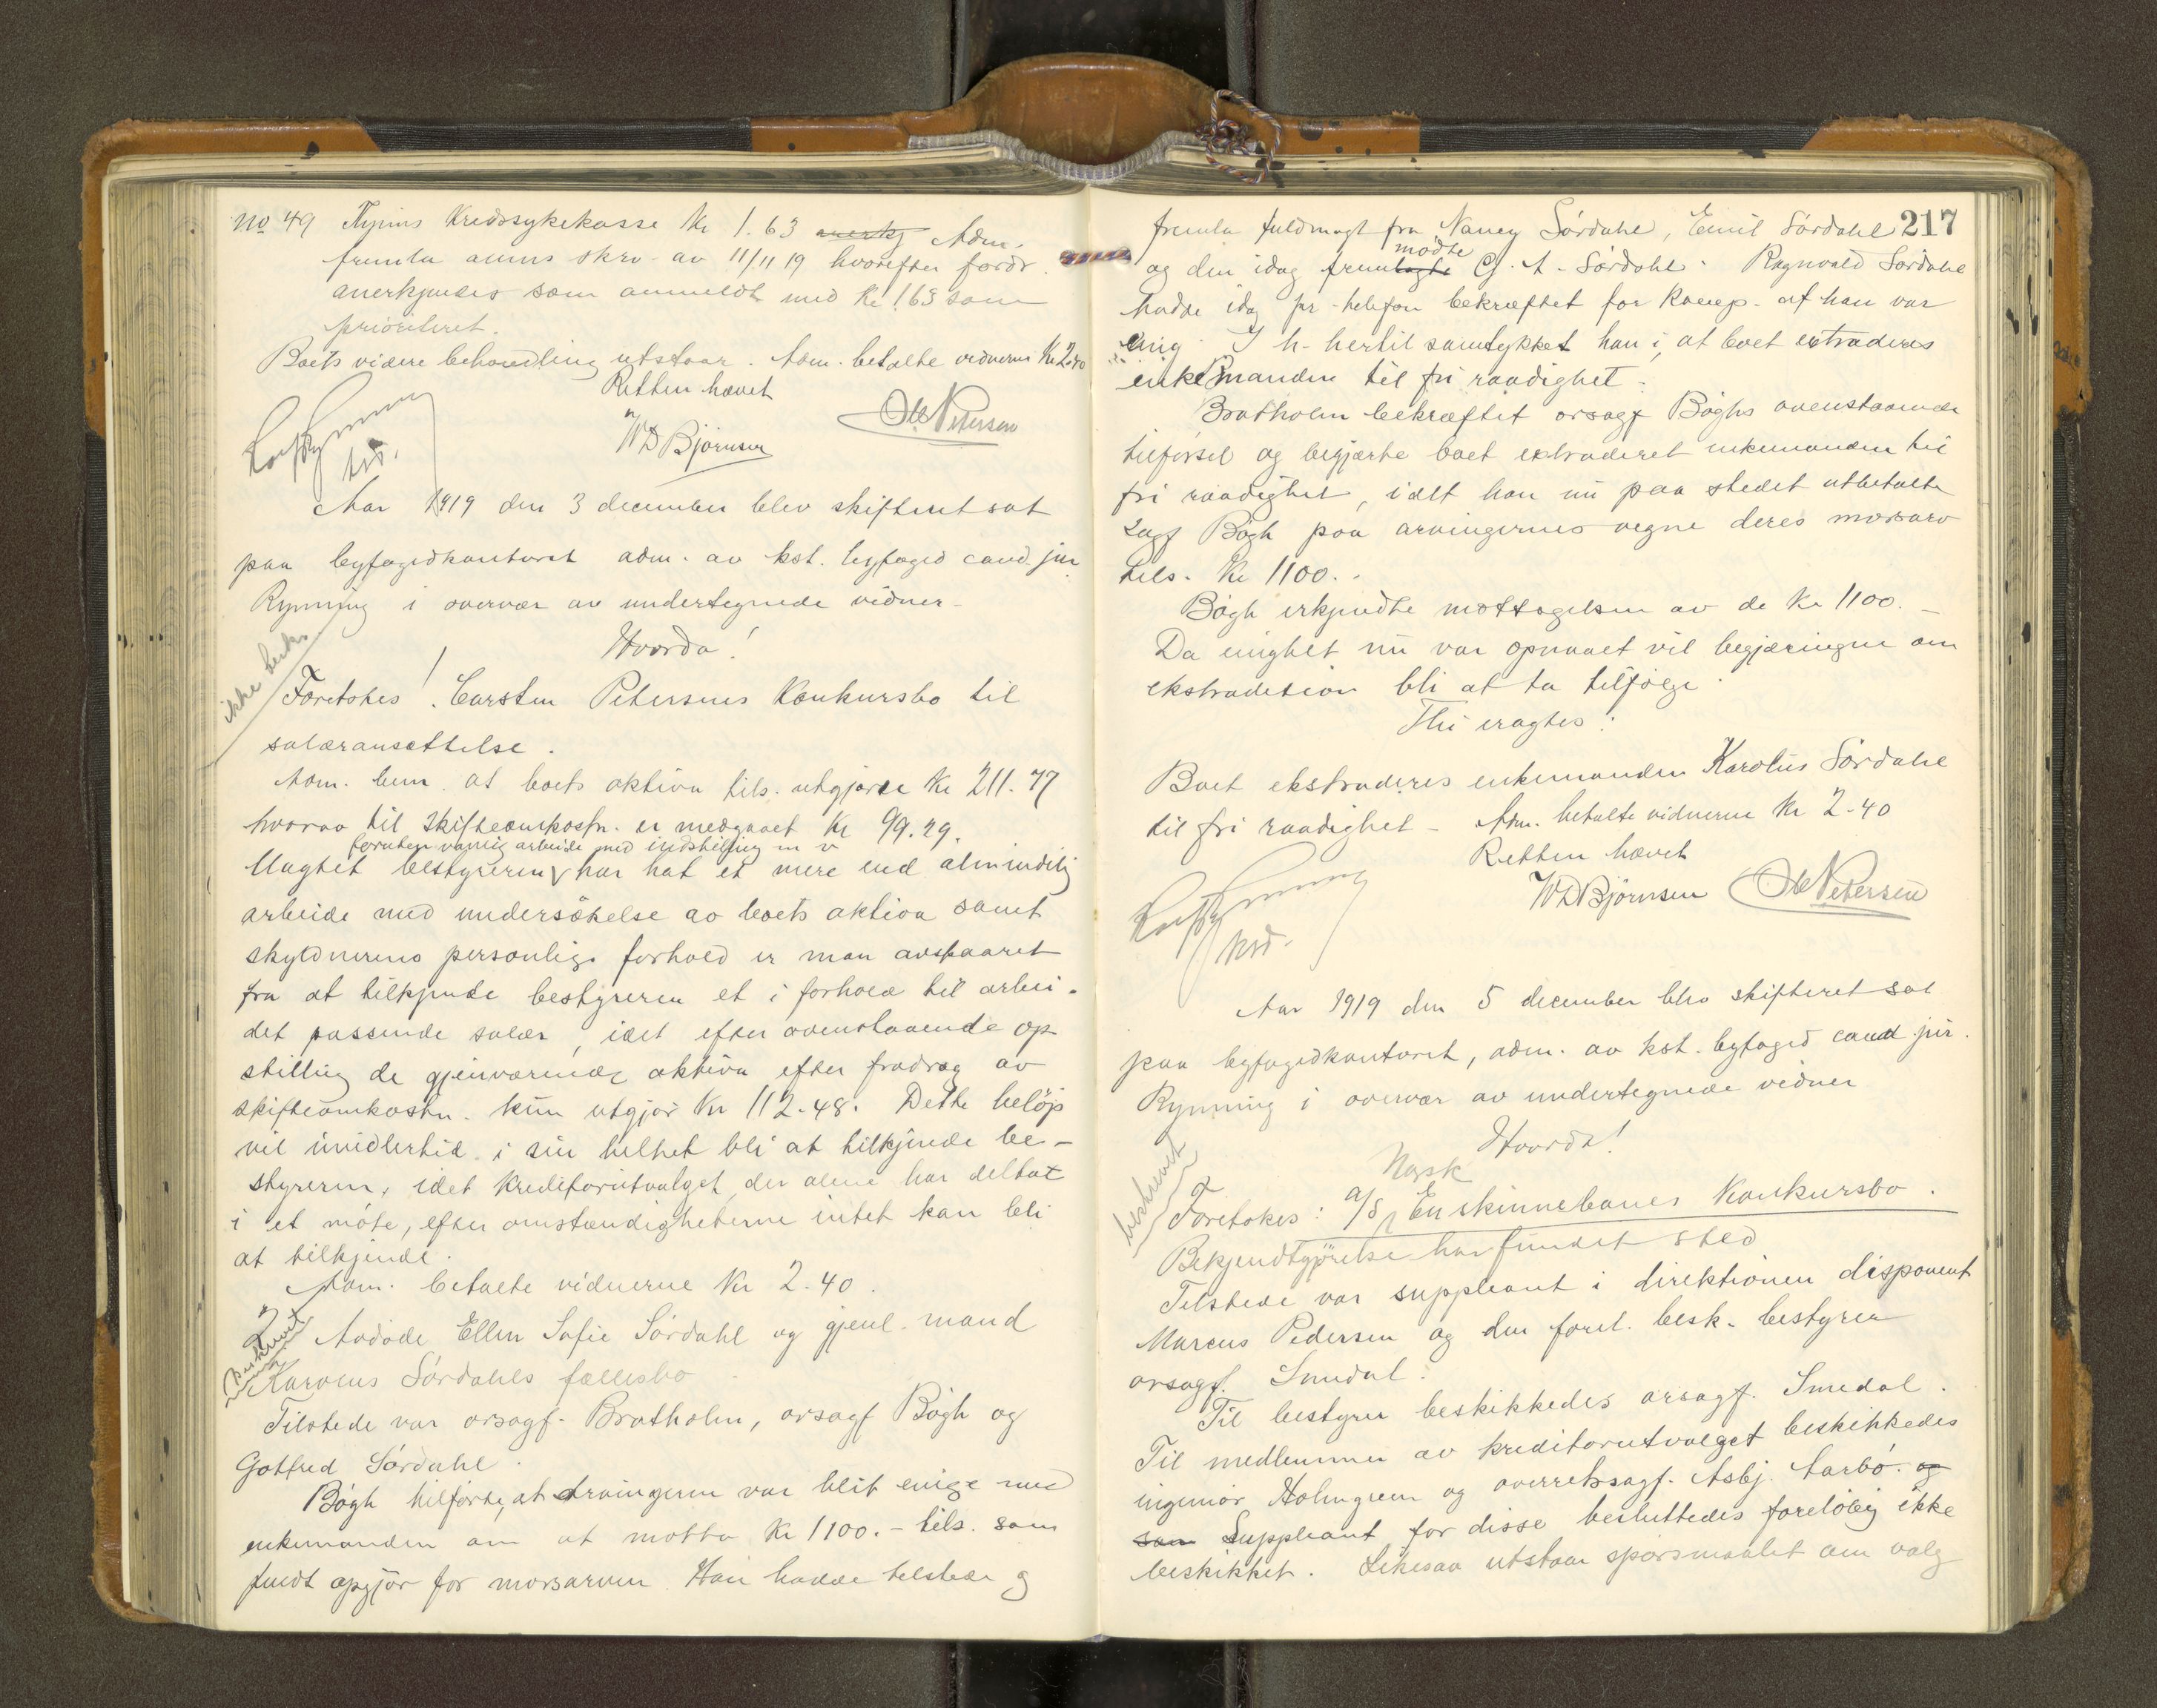 No 49 Kredssykekasse Kr 1.63 anerkj Adm.
fremla anms skrv. av 11/11 19 hvorefter fordr.
anerkjendes som anmeldt med Kr 1.63 som
prioriteret.
Boets videre behandling utstaar. Adm. betalte vidnerne Kr 2.40
Retten hævet
WD Bjørnsen Ole Petersen
kst.
Aar 1919 den 3 december blev skifteret sat
paa byfogedkontoret adm. av kst. byfoged cand. jur
Rynning i overvær av undertegnede vidner.
Hvorda!
ikke beskr
Foretokes: Carsten Petersens Konkursbo til
salæransættelse.
Adm. bem. at boets aktiva tils. utgjorde Kr 211.77
hvorav til skifteomkostn. er medgaaet Kr 99.29.
foruten vanlig arbeide med indstilling m v
Uagtet bestyreren har hat et mere end almindelig
arbeide med undersøkelse av boets aktiva samt
skyldnerens personlige forhold er man avskaaret
fra at tilkjende bestyreren et i forhold til arbei-
det passende salær, idet efter ovenstaaende op-
stilling de gjenværende aktiva efter fradrag av
skifteomkostn. kun utgjør Kr 112.48. Dette beløp
vil imidlertid i sin helhet bli at tilkjende be-
styreren, idet kreditorutvalget, der alene har deltat
i et møte, efter omstændigheterne intet kan bli
at tilkjende.
Adm. betalte vidnerne Kr 2.40.
2 Avdøde Ellen Sofie Sørdahl og gjenl. mand
Beskrevet
Karolius Sørdahls fællesbo.
Tilstede var orsagf. Bratholm, orsagf Bøgh og
Gotfred Sørdahl.
Bøgh tilførte, at arvingerne var blit enige med
enkemanden om at motta Kr 1100.- tils. som
fuldt opgjør for morsarven. Han hadde tilstede og
217
fremla fuldmagt fra Nancy Sørdahl, Emil Sørdahl
mødte
og den idag fremlagte A. Sørdahl. Ragnvald Sørdahl
hadde idag pr. telefon bekræftet for Komp. at han var
enig. I h. hertil samtykket han i, at boet extraderes
enkemanden til fri raadighet.
Bratholm bekræftet orsagf Bøghs ovenstaaende
tilførsel og begjærte boet extraderet enkemanden til
fri raadighet, idet han nu paa stedet utbetalte
sagf Bøgh paa arvingernes vegne deres morsarv
tils. Kr 1100..
Bøgh erkjendte mottagelsen av de Kr 1100.-
Da enighet nu var opnaaet vil begjæringen om
ekstradition bli at ta tilfølge.
Thi eragtes:
Boet ekstraderes enkemanden Karolius Sørdahl
til fri raadighet - Adm. betalte vidnerne Kr 2.40
Retten hævet
WD Bjørnsen Ole Petersen
kst.
Aar 1919 den 5 december blev skifteret sat
paa byfogedkontoret, adm. av kst. byfoged cand. jur.
Rynning i overvær av undertegnede vidner
Hvorda!
beskrevet
Norsk
Foretokes: A/S Enskinnebanes Konkursbo.
Bekjendtgjørelse har fundet sted
Tilstede var suppleant i direktionen disponent
Marcus Pedersen og den forel. besk. bestyrer
orsagf. Smedal.
Til bestyrer beskikkedes orsagf. Smedal.
Til medlemmer av kreditorutvalget beskikkedes
ingeniør Holmgren og overretssagf. Asbj. Aarbø. og
som Suppleant for disse besluttedes foreløbig ikke
beskikket. Likesaa utstaar spørsmaalet om valg